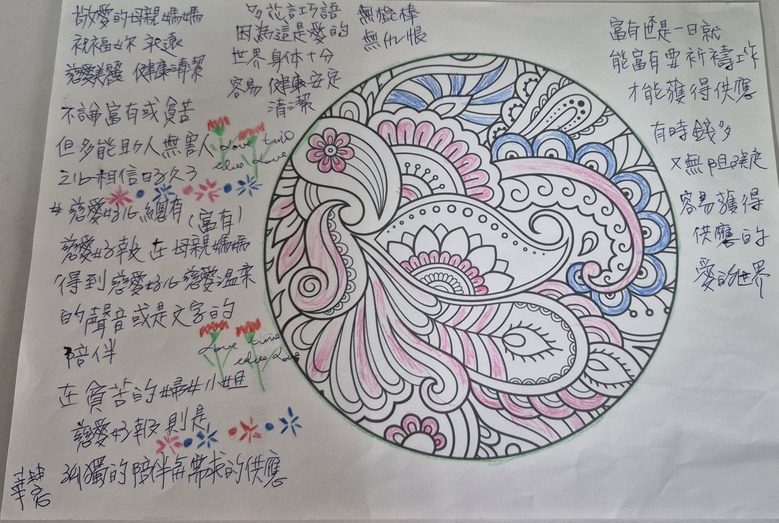 敬愛的母親媽媽
祝福妳 永遠
慈愛美麗 健康清潔
不論富有或貧苦
但多能助人無害人
之心相信日子久了
慈愛好心總有(富有)
慈愛好報在母親媽媽
得到慈愛好心慈愛溫柔
的聲音或是文字的
陪伴
在貧苦的婦女小姐
慈愛好報則是
孤獨的陪伴再需求的供應
因為這是愛的
世界 身体十分
容易健康安定
清潔
無
無仇恨
富有也是一日就
能富有要祈禱工作
才能獲得供應
有時錢多
又無阻礙
容易獲得
供應的
愛的世界
Love
Love
Love